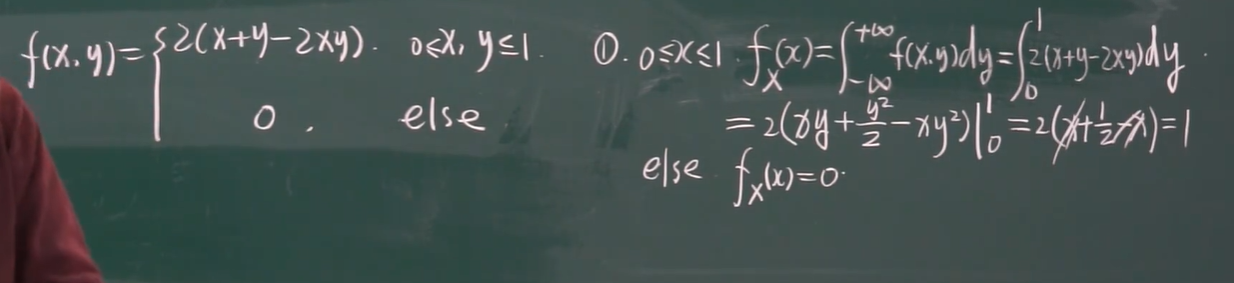 f(x,y)={2(x+y-2xy). 0≤x, y≤1.
0, else
①. 0≤x≤1. f_X(x)=∫_{-∞}^{+∞} f(x,y)dy=∫_0^1 2(x+y-2xy)dy.
=2(xy+y²/2-xy²)|_0^1=2(x+1/2-x)=1
else f_X(x)=0.